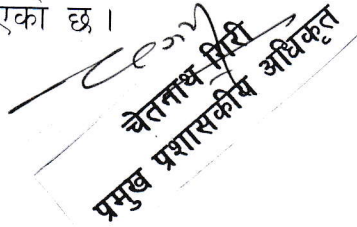 एको छ ।
चेतनाथ गिरी
प्रमुख प्रशासकीय अधिकृत